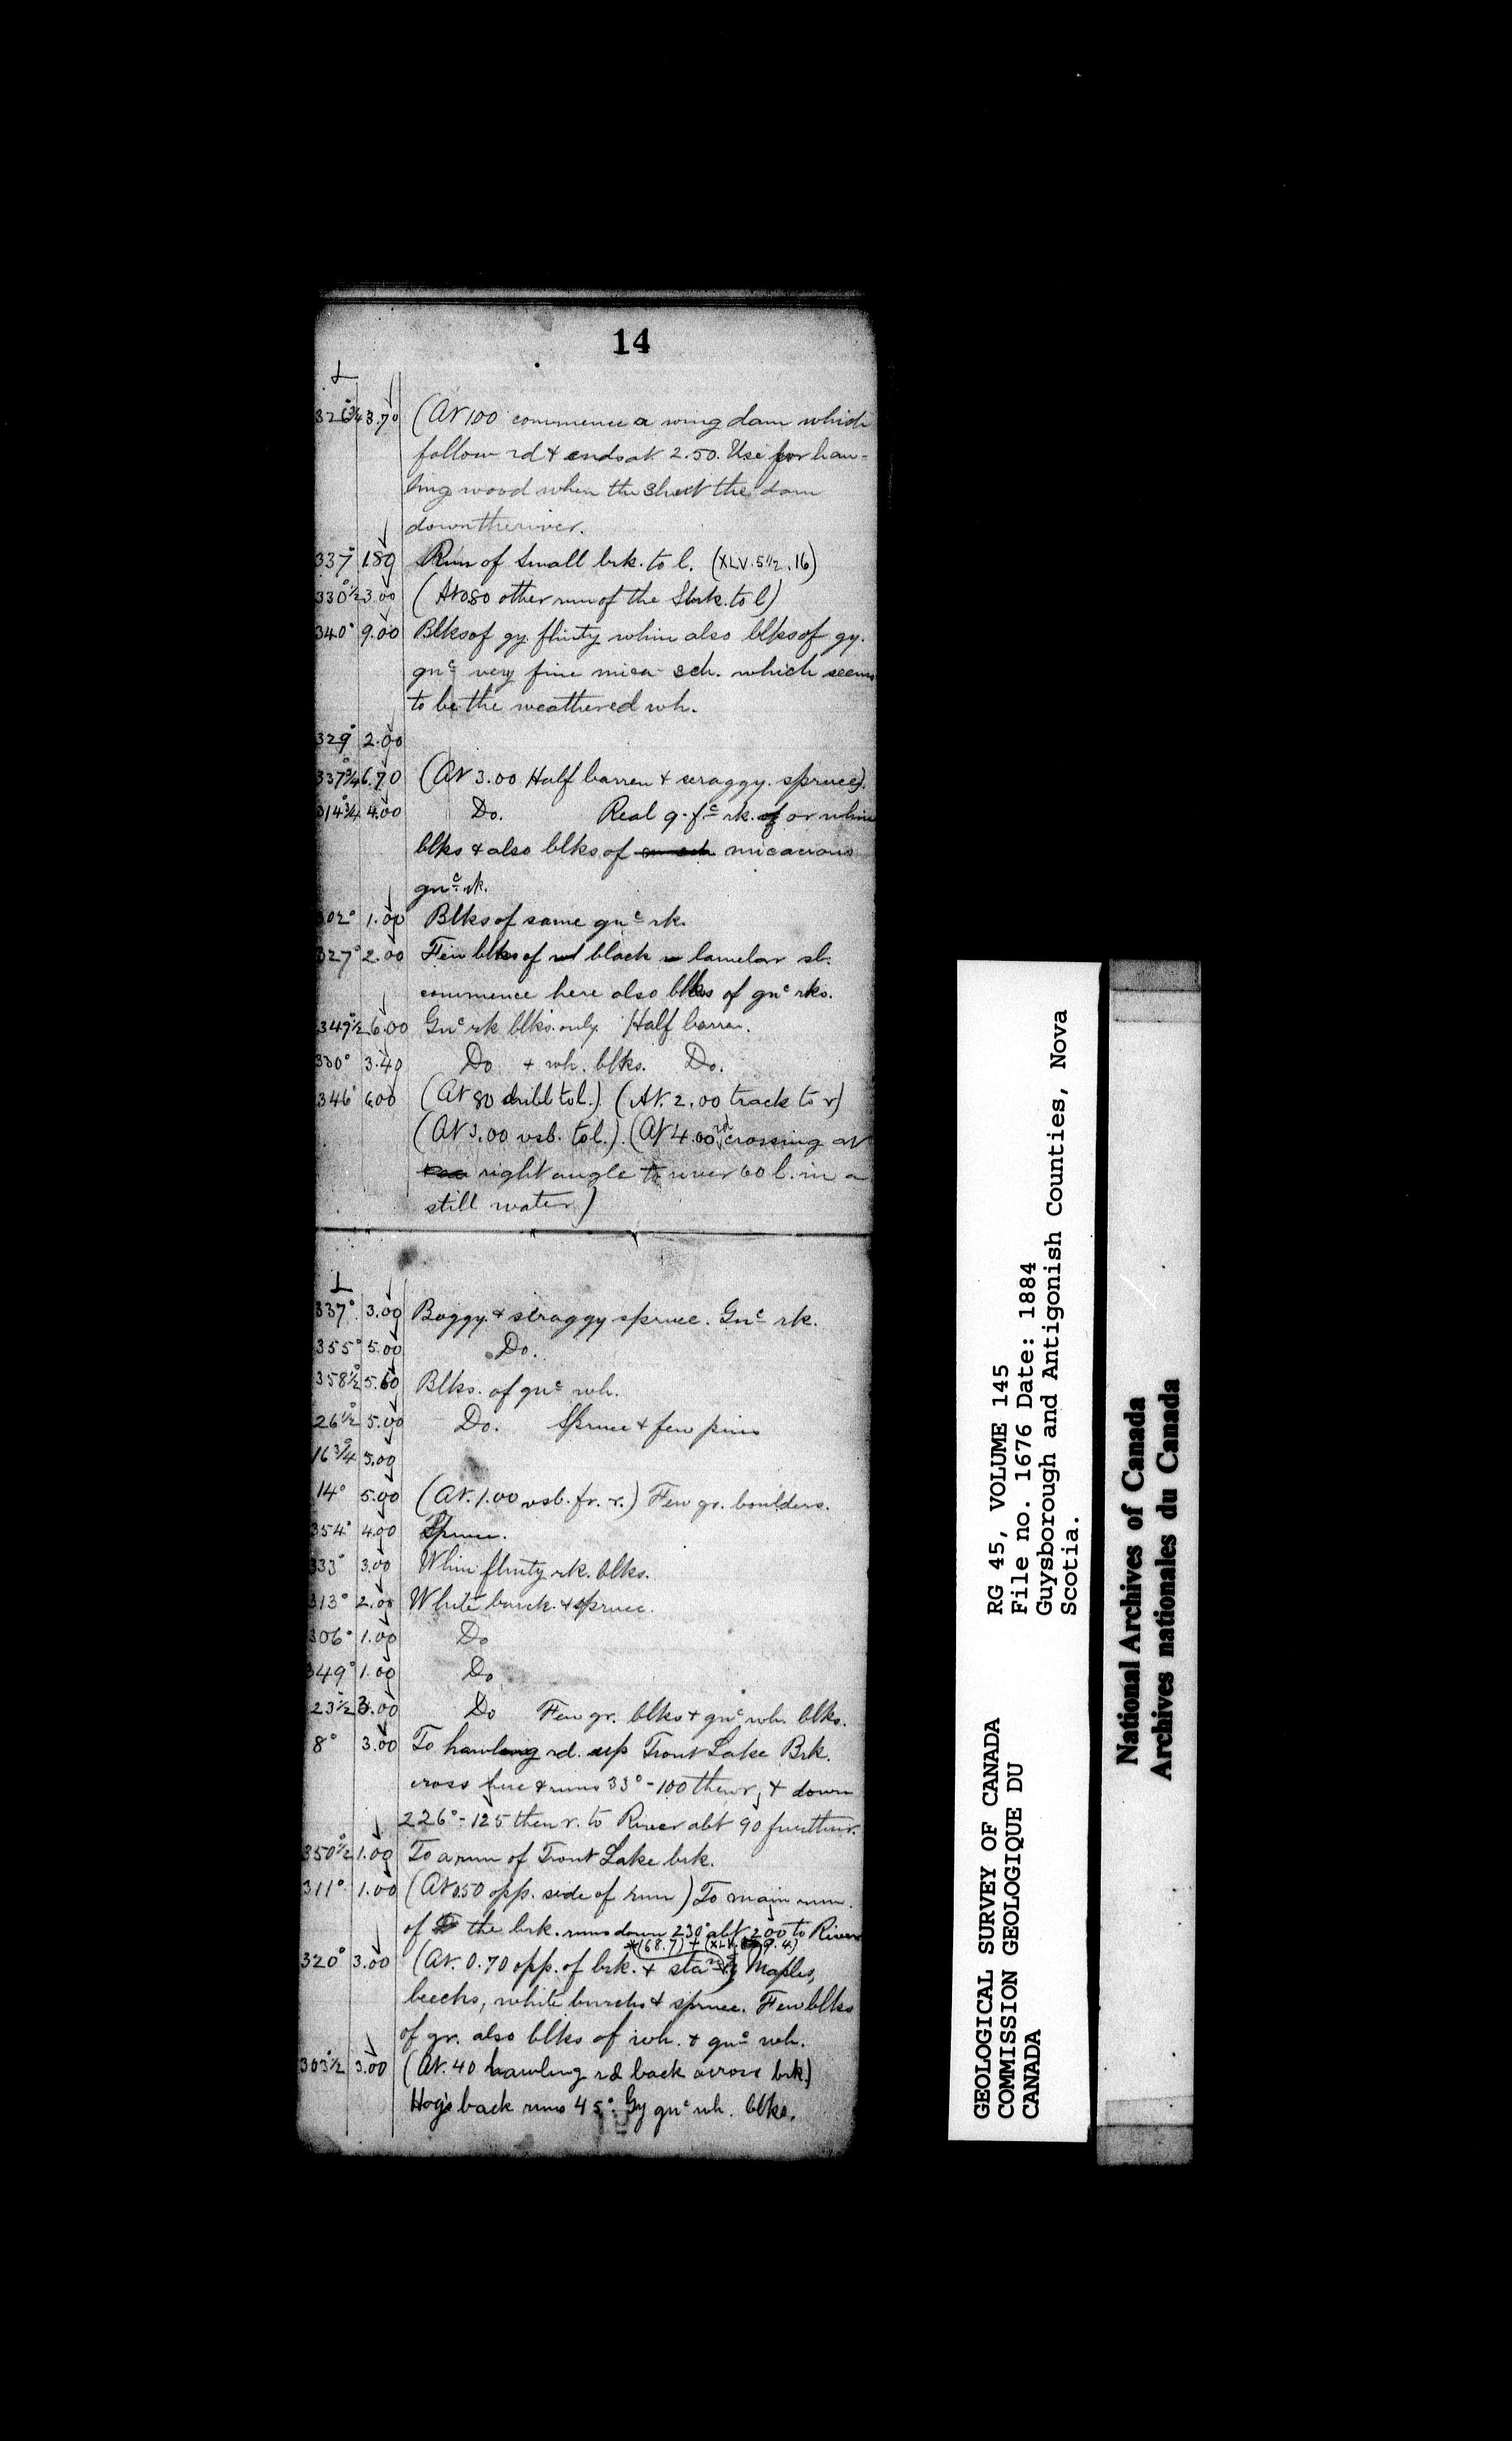 14
326°3/4 3.70 (At 1.00 commence a wing dam which
follow rd & ends at 2.50. Use for haw-
ling wood when the shut the dam
down the river.
337° 1.80 Run of small brk. to l. (XLV. 5 1/2. 16)
330°1/2 3.00 (At 080 other run of the S brk. to l)
340° 9.00 Blks of gy. flinty whin also blks of gy.
gnc very fine mica sch. which seems
to be the weathered wh.
329° 2.00
337°3/4 6.70 (At 3.00 Half barren & scraggy. spruce).
014°3/4 4.00 Do. Real q. fc rk. or whin
blks & also blks of micacious
gnc rk.
302° 1.00 Blks of same gnc rk.
327° 2.00 Few blks of black lamelar sl.
commence here also blks of gnc rks.
349°1/2 6.00 Gnc rk blks. only. Half barren.
330° 3.40 Do + wh. blks. Do.
346° 6.00 (At 80 to l.) (At. 2.00 track to r)
(At 3.00 vsb. to l.). (At 4.00 rd crossing at
right angle to river 60 l. in a
still water)
337° 3.00 Boggy. & scraggy spruce. Gnc rk.
355° 5.00 Do.
358°1/2 5.60 Blks. of gnc wh.
26°1/2 5.00 Do. Spruce & few pines
16°3/4 5.00
14° 5.00 (At. 1.00 vsb. fr. r.) Few gr. boulders.
354° 4.00 Spruce.
333° 3.00 Whin flinty rk. blks.
313° 2.00 White burch. & spruce.
306° 1.00 Do
349° 1.00 Do
23°1/2 3.00 Do Few gr. blks & gnc wh. blks.
8° 3.00 To hawling rd. up Trout Lake Brk.
cross here & runs 33°-100 then r, & down
226°-125 then r. to River abt 90 further.
350°1/2 1.00 To a run of Trout Lake brk.
311° 1.00 (At 0.50 opp. side of run) To main run
of the brk. runs down 230° abt 2.00 to River
*(68.7) + (XLV. 9.4)
320° 3.00 (At. 0.70 opp. of brk. & sta Maples,
beechs, white burchs & spruce. Few blks
of gr. also blks of wh. & gnc wh.
303°1/2 3.00 (At. 40 hawling rd back across brk)
Hog's back runs 45°. Gy gnc wh. blks.
RG 45, VOLUME 145
File no. 1676 Date: 1884
Guysborough and Antigonish Counties, Nova
Scotia.
GEOLOGICAL SURVEY OF CANADA
COMMISSION GEOLOGIQUE DU
CANADA
National Archives of Canada
Archives nationales du Canada